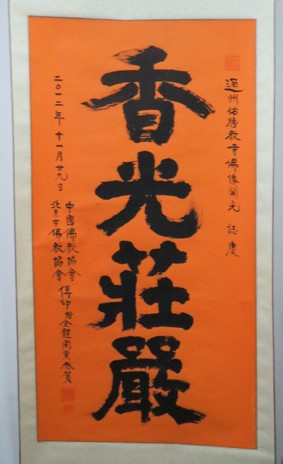 通州佑勝教寺佛像開光 誌慶
香光莊嚴
中國佛教協會
北京市佛教協會 傳印暨全體同寅恭賀
二〇一二年 十一月廿九日